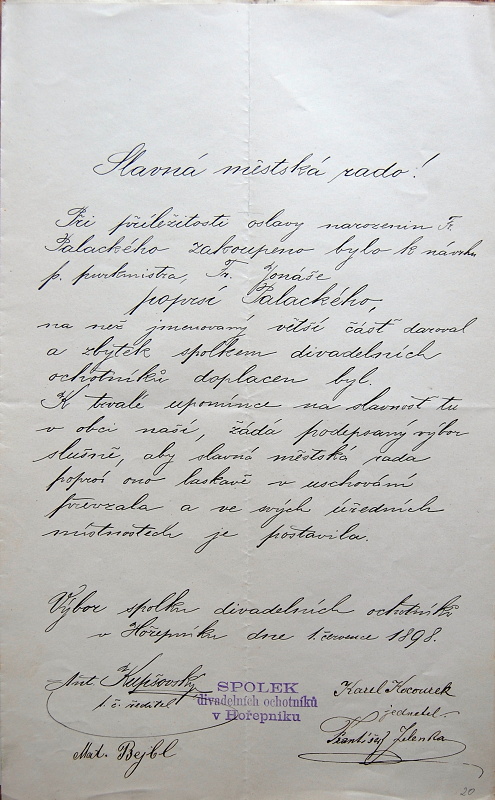 Slavná městská rado!
Při příležitosti oslavy narozenin Fr.
Palackého zakoupeno bylo k návrhu
p. purkmistra, Fr. Jonáše
poprsí Palackého,
na něž jmenovaný větší část daroval
a zbytek spolkem divadelních
ochotníků doplacen byl.
K trvalé upomínce na slavnost tu
v obci naší, žádá podepsaný výbor
slušně, aby slavná městská rada
poprsí ono laskavě v uschování
převzala a ve svých úředních
místnostech je postavila.
Výbor spolku divadelních ochotníků
v Hořepníku dne 1. července 1898.
Ant.
t. č. ředitel
SPOLEK
divadelních ochotníků
v Hořepníku
Karel Kocourek
jednatel
Mat. Bejbl
František Jelenka
20